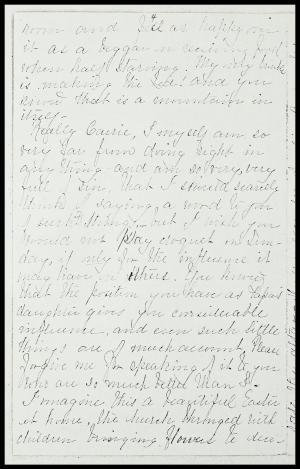 room and I'll as happy in
it as a beggar in receiving food
when half starving. My very work
is making the bed! and you
know that is a mountain in
itself.
Really Carrie, I myself am so
very far from doing right in
any thing and am so very, very
full of sin, that I should scarcely
think of saying, a word to you
of such things, but I wish you
would not play croquet on Sun-
day, if only for the influence it
may have on others. You know
that the position you have as Papa's
daughter gives you considerable
influence, and even such little
things are of much account. Please
forgive me for speaking of it to you
who are so much better than I.
I imagine this a beautiful Easter
at home, the church thronged with
children bringing flowers to dec-